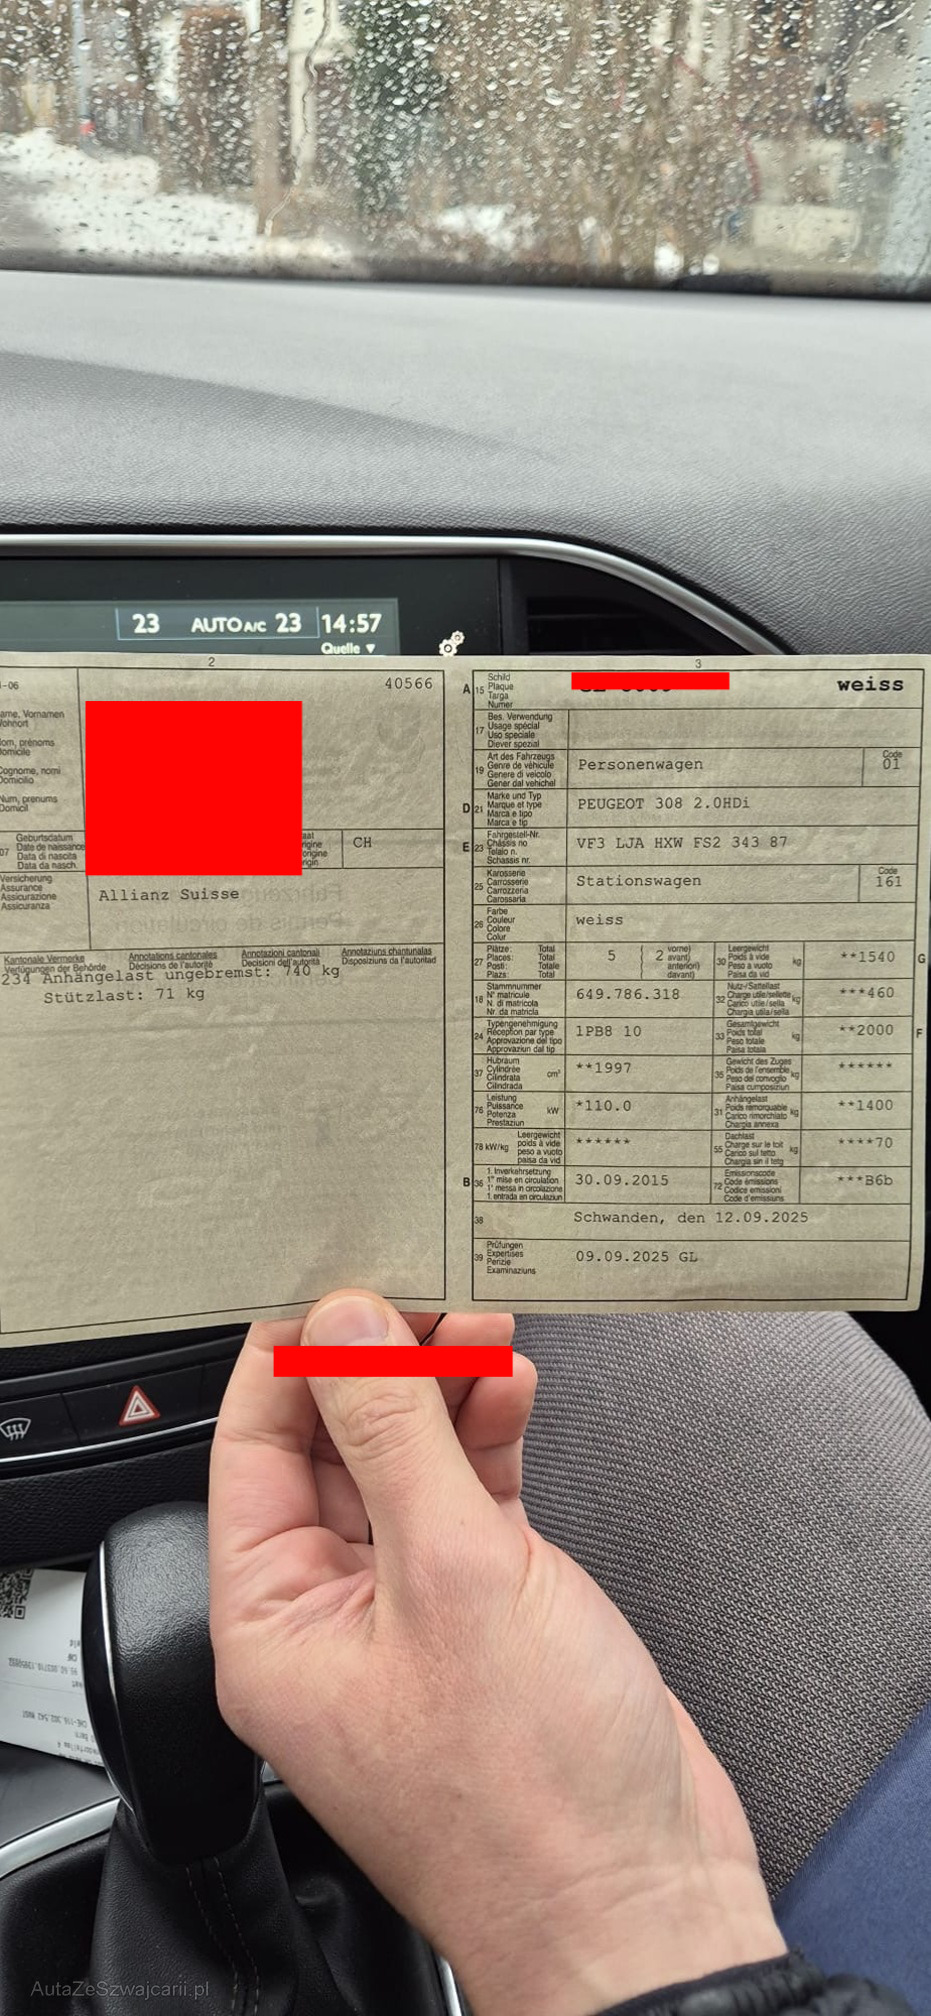 23 AUTO A/C 23 14:57
Quelle ▼
2
-06
40566
ame, Vornamen
ohnort
om, prénoms
omicile
ognome, nomi
omicilio
um, prenums
omicil
07
Geburtsdatum
Date de naissance
Data di nascita
Data da nasch.
CH
Versicherung
Assurance
Assicurazione
Assicuranza
Allianz Suisse
Kantonale Vermerke
Verfügungen der Behörde
Annotations cantonales
Décisions de l'autorité
Annotazioni cantonali
Decisioni dell'autorità
Annotaziuns chantunalas
Disposiziuns da l'autoritad
234 Anhängelast ungebremst: 740 kg
Stützlast: 71 kg
3
A 15
Schild
Plaque
Targa
Numer
weiss
17
Bes. Verwendung
Usage spécial
Uso speciale
Diever spezial
19
Art des Fahrzeugs
Genre de véhicule
Genere di veicolo
Gener dal vehichel
Personenwagen
Code
01
D 21
Marke und Typ
Marque et type
Marca e tipo
Marca e tip
PEUGEOT 308 2.0HDi
E 23
Fahrgestell-Nr.
Châssis no
Telaio n.
Schassis nr.
VF3 LJA HXW FS2 343 87
25
Karosserie
Carrosserie
Carrozzeria
Carossaria
Stationswagen
Code
161
26
Farbe
Couleur
Colore
Colur
weiss
27
Plätze: Total
Places: Total
Posti: Totale
Plazs: Total
5 ( 2
vorne)
avant)
anteriori)
davant)
30
Leergewicht
Poids à vide
Peso a vuoto
Paisa da vid
kg
**1540
G
18
Stammnummer
N° matricule
N. di matricola
Nr. da matricla
649.786.318
32
Nutz-/Sattellast
Charge utile/sellette
Carico utile/sella
Chargia utila/sella
kg
***460
24
Typengenehmigung
Réception par type
Approvazione del tipo
Approvaziun dal tip
1PB8 10
33
Gesamtgewicht
Poids total
Peso totale
Paisa totala
kg
**2000
F
37
Hubraum
Cylindrée
Cilindrata
Cilindrada
cm³
**1997
35
Gewicht des Zuges
Poids de l'ensemble
Peso del convoglio
Paisa cumposiziun
kg
******
76
Leistung
Puissance
Potenza
Prestaziun
kW
*110.0
31
Anhängelast
Poids remorquable
Carico rimorchiato
Chargia annexa
kg
**1400
78 kW/kg
Leergewicht
poids à vide
peso a vuoto
paisa da vid
******
55
Dachlast
Charge sur le toit
Carico sul tetto
Chargia sin il tetg
kg
****70
B 36
1. Inverkehrsetzung
1re mise en circulation
1a messa in circolazione
1. entrada en circulaziun
30.09.2015
72
Emissionscode
Code émissions
Codice emissioni
Code d'emissiuns
***B6b
38
Schwanden, den 12.09.2025
39
Prüfungen
Expertises
Perizie
Examinaziuns
09.09.2025 GL
AutaZeSzwajcarii.pl